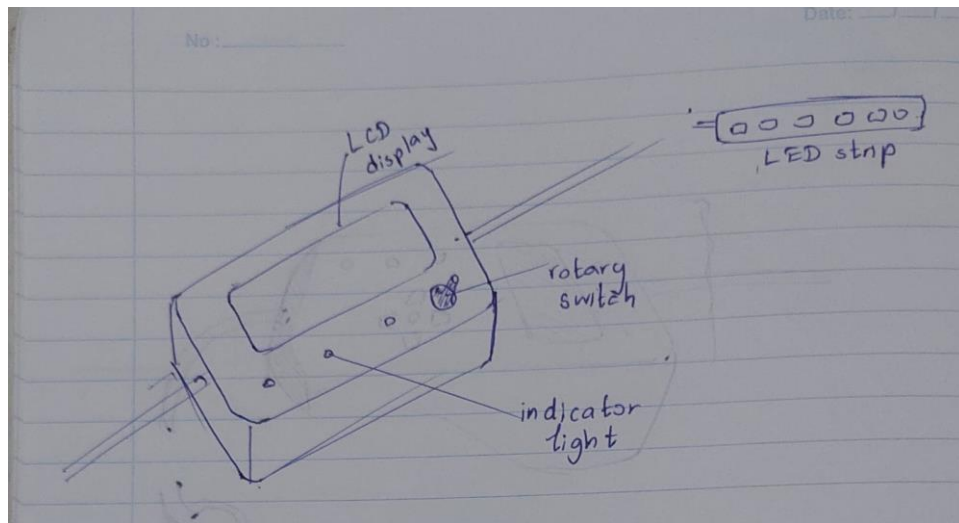 No :
Date: / /
LCD
display
LED strip
rotary
switch
indicator
light